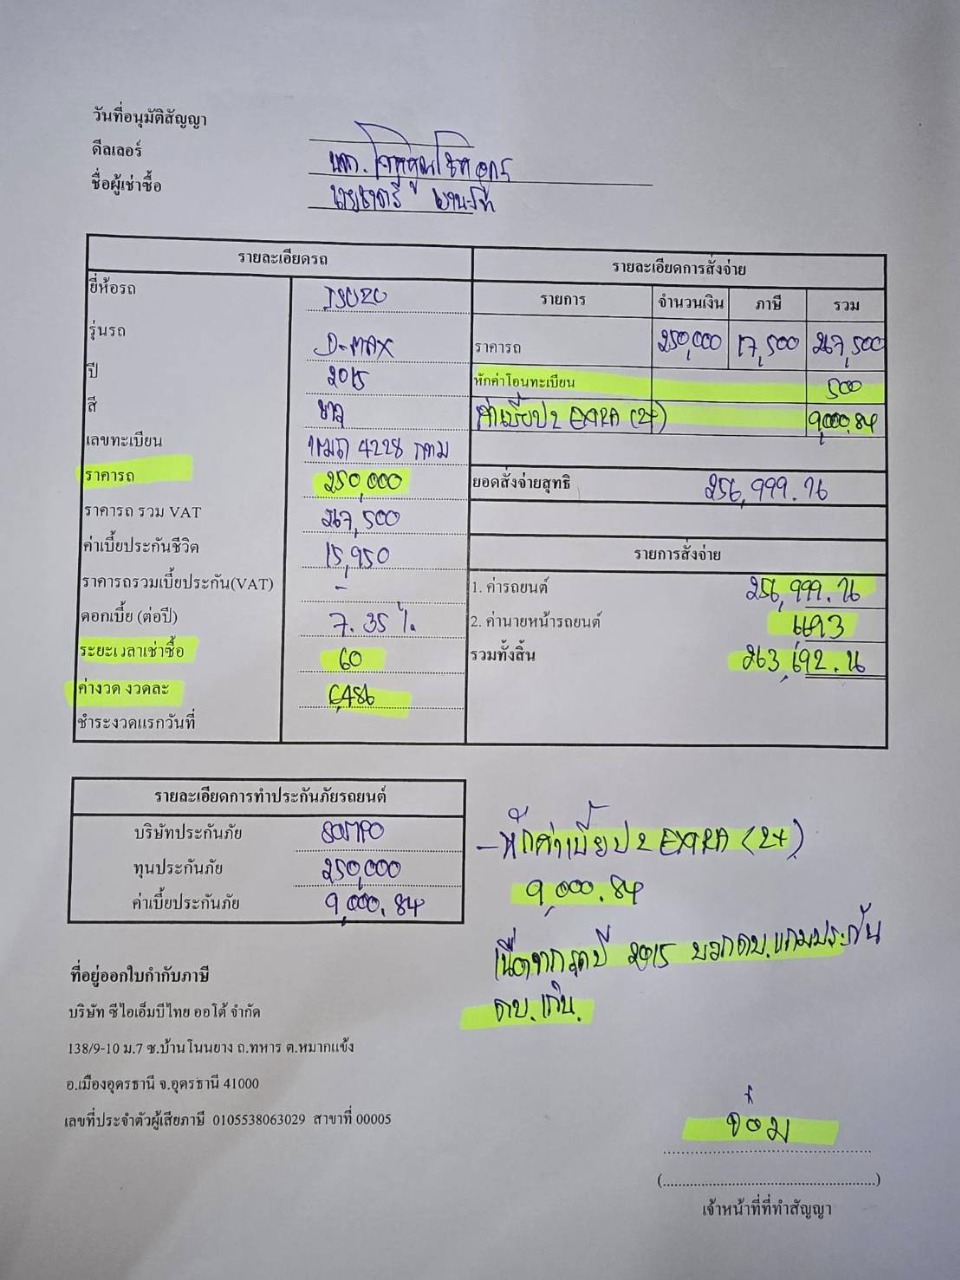 วันที่อนุมัติสัญญา
ดีลเลอร์
ชื่อผู้เช่าซื้อ
รายละเอียดรถ
ยี่ห้อรถ ISUZU
รุ่นรถ D-MAX
ปี 2015
สี
เลขทะเบียน 4228 กทม
ราคารถ 250,000
ราคารถ รวม VAT 267,500
ค่าเบี้ยประกันชีวิต 15,950
ราคารถรวมเบี้ยประกัน(VAT) -
ดอกเบี้ย (ต่อปี) 7.35 %
ระยะเวลาเช่าซื้อ 60
ค่างวด งวดละ 6,486
ชำระงวดแรกวันที่
รายละเอียดการสั่งจ่าย
รายการ จำนวนเงิน ภาษี รวม
ราคารถ 250,000 17,500 267,500
หักค่าโอนทะเบียน 500
ค่าเบี้ยป2 EXTRA (2+) 9,000.84
ยอดสั่งจ่ายสุทธิ 256,999.16
รายการสั่งจ่าย
1. ค่ารถยนต์ 256,999.16
2. ค่านายหน้ารถยนต์ 6693
รวมทั้งสิ้น 263,692.16
รายละเอียดการทำประกันภัยรถยนต์
บริษัทประกันภัย SOMPO
ทุนประกันภัย 250,000
ค่าเบี้ยประกันภัย 9,000.84
- หักค่าเบี้ยป2 EXTRA (2+)
9,000.84
เนื่องจากรถปี 2015 บวกดบ.แถมประกัน
ดบ.เกิน.
ที่อยู่ออกใบกำกับภาษี
บริษัท ซีไอเอ็มบีไทย ออโต้ จำกัด
138/9-10 ม.7 ซ.บ้านโนนยาง ถ.ทหาร ต.หมากแข้ง
อ.เมืองอุดรธานี จ.อุดรธานี 41000
เลขที่ประจำตัวผู้เสียภาษี 0105538063029 สาขาที่ 00005
(..................................................)
เจ้าหน้าที่ที่ทำสัญญา